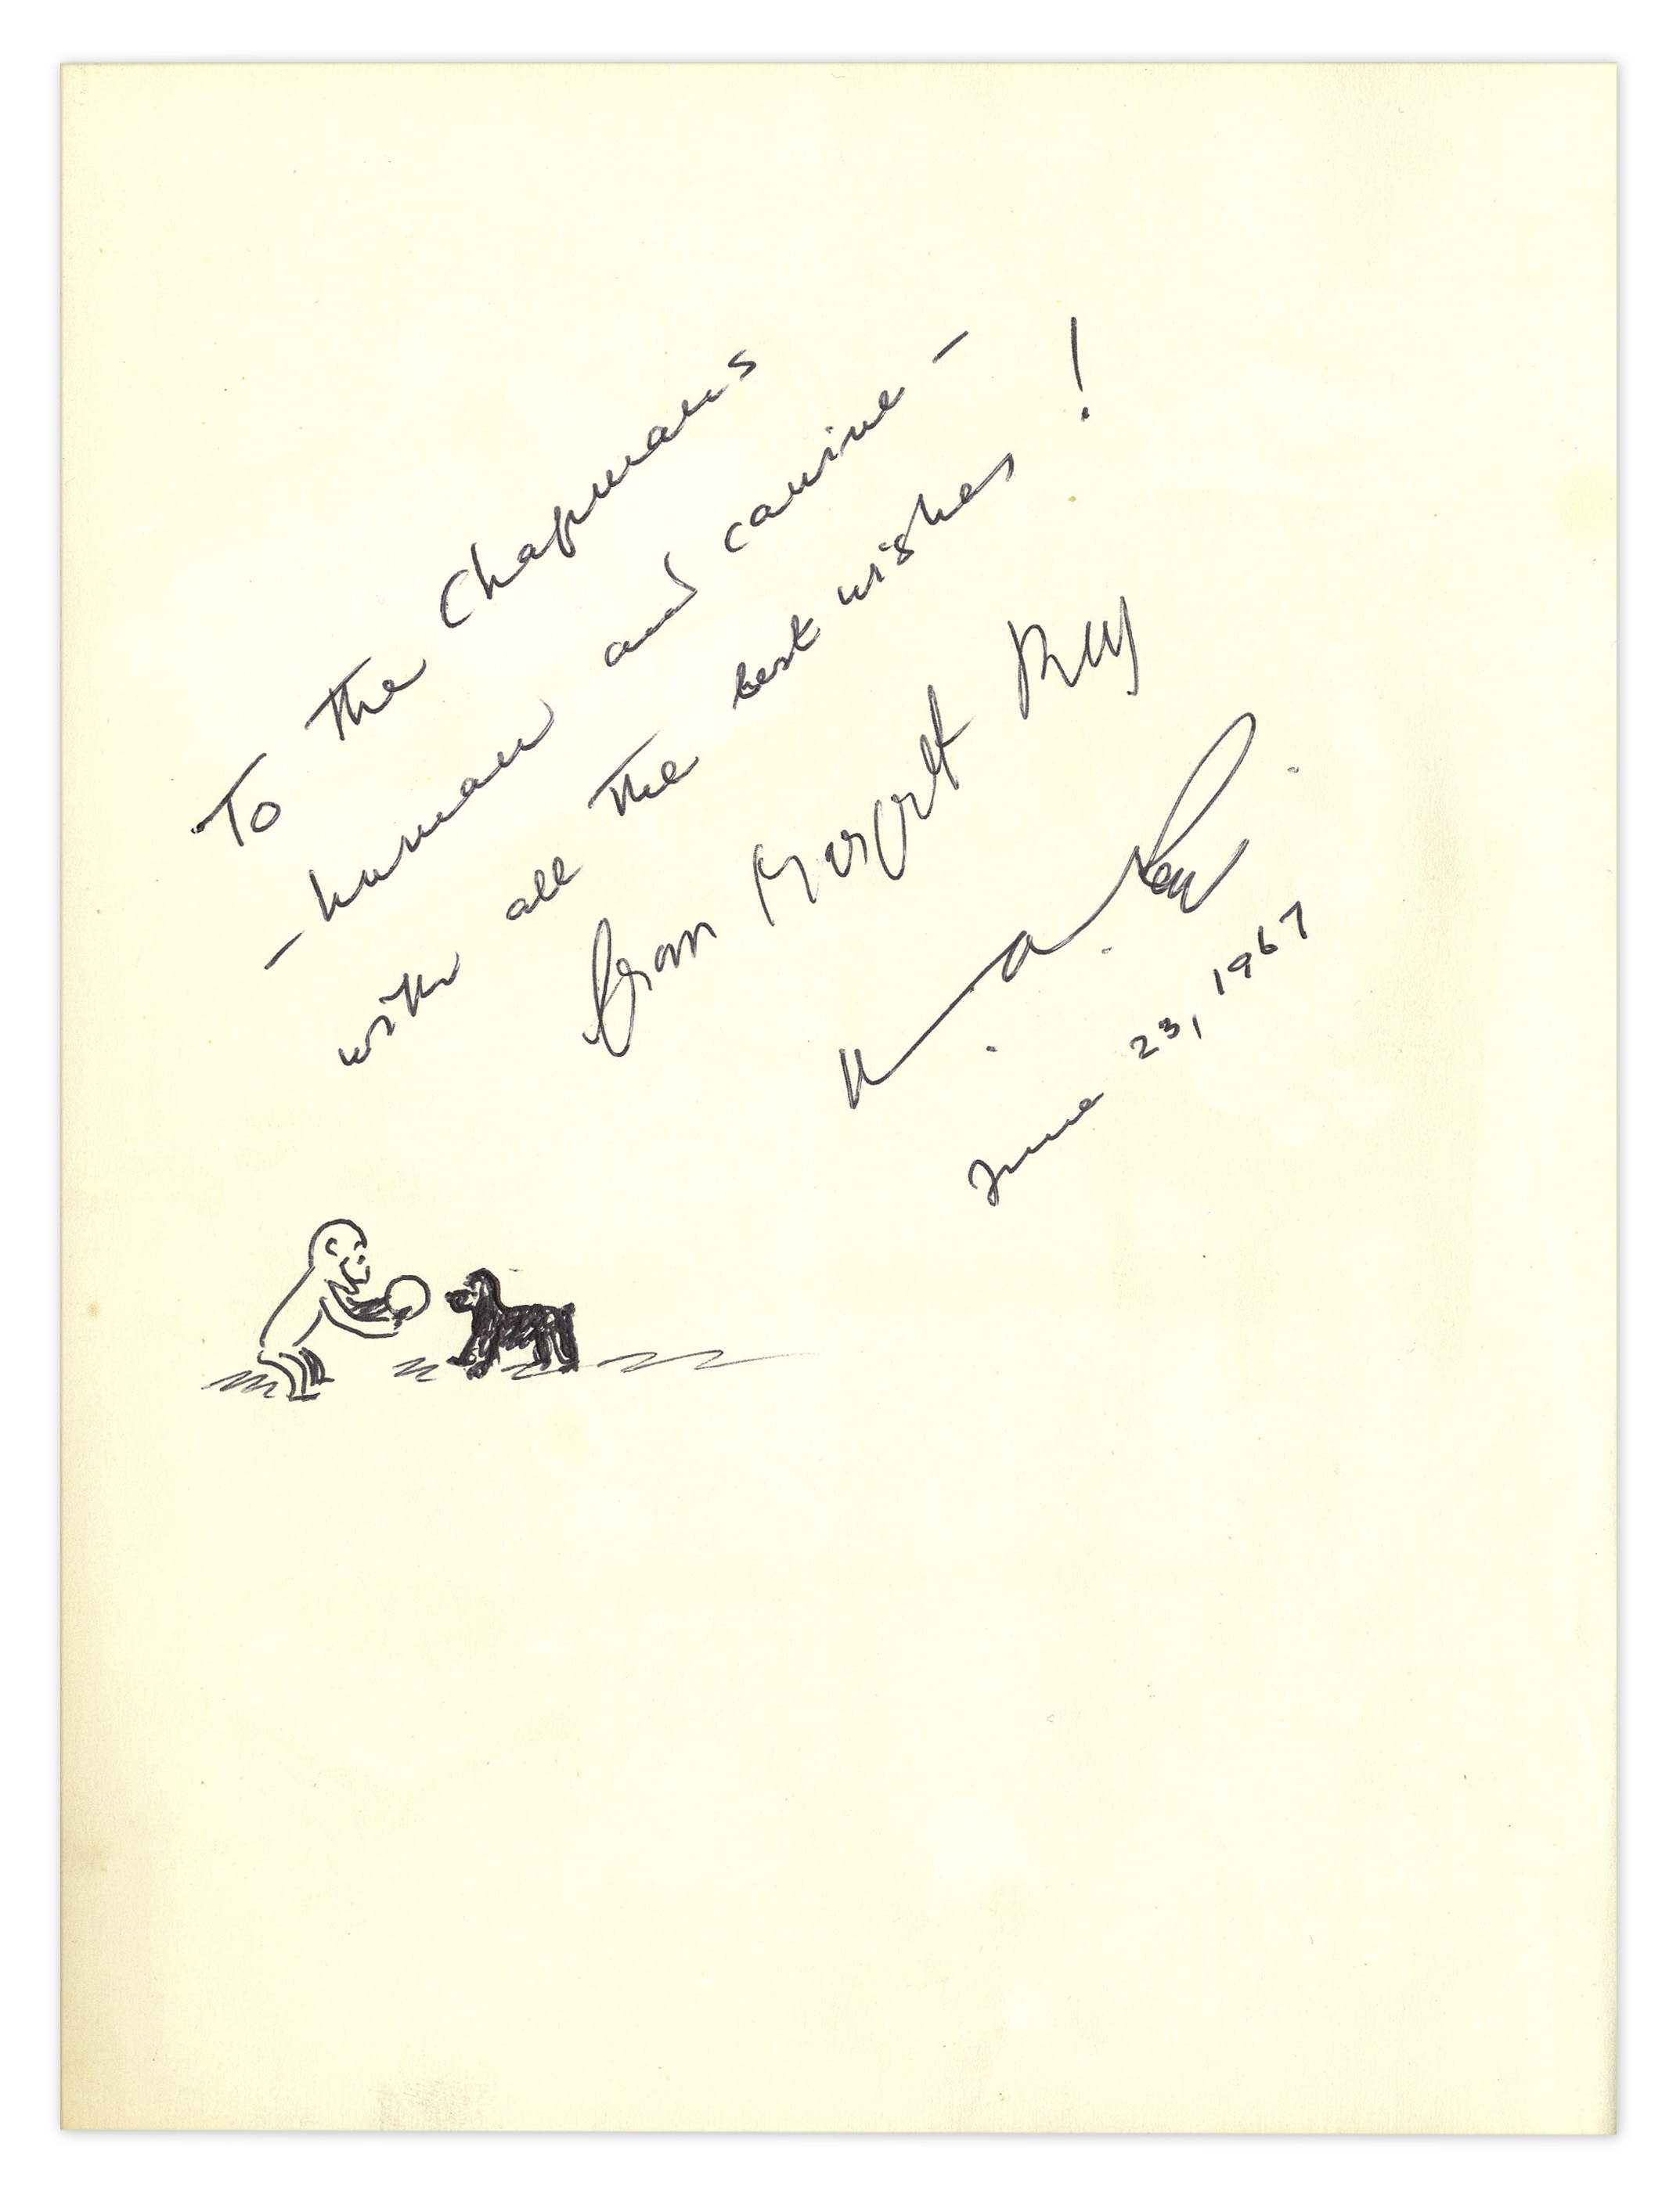 To the Chapmans
– human and canine –
with all the best wishes!
from Margret Rey
H. A. Rey
June 23, 1967